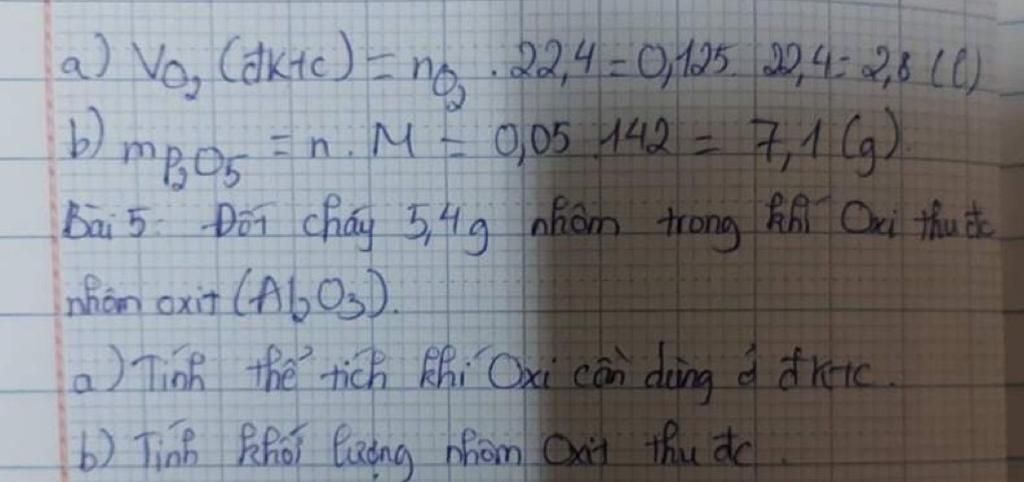 a) VO₂ (đktc) = nO₂ . 22,4 = 0,125. 22,4 = 2,8 (l)
b) mP₂O₅ = n . M = 0,05 . 142 = 7,1 (g).
Bài 5: Đốt cháy 5,4g nhôm trong khí Oxi thu đc
nhôm oxit (Al₂O₃).
a) Tính thể tích khí Oxi cần dùng ở đktc.
b) Tính khối lượng nhôm Oxit thu đc.